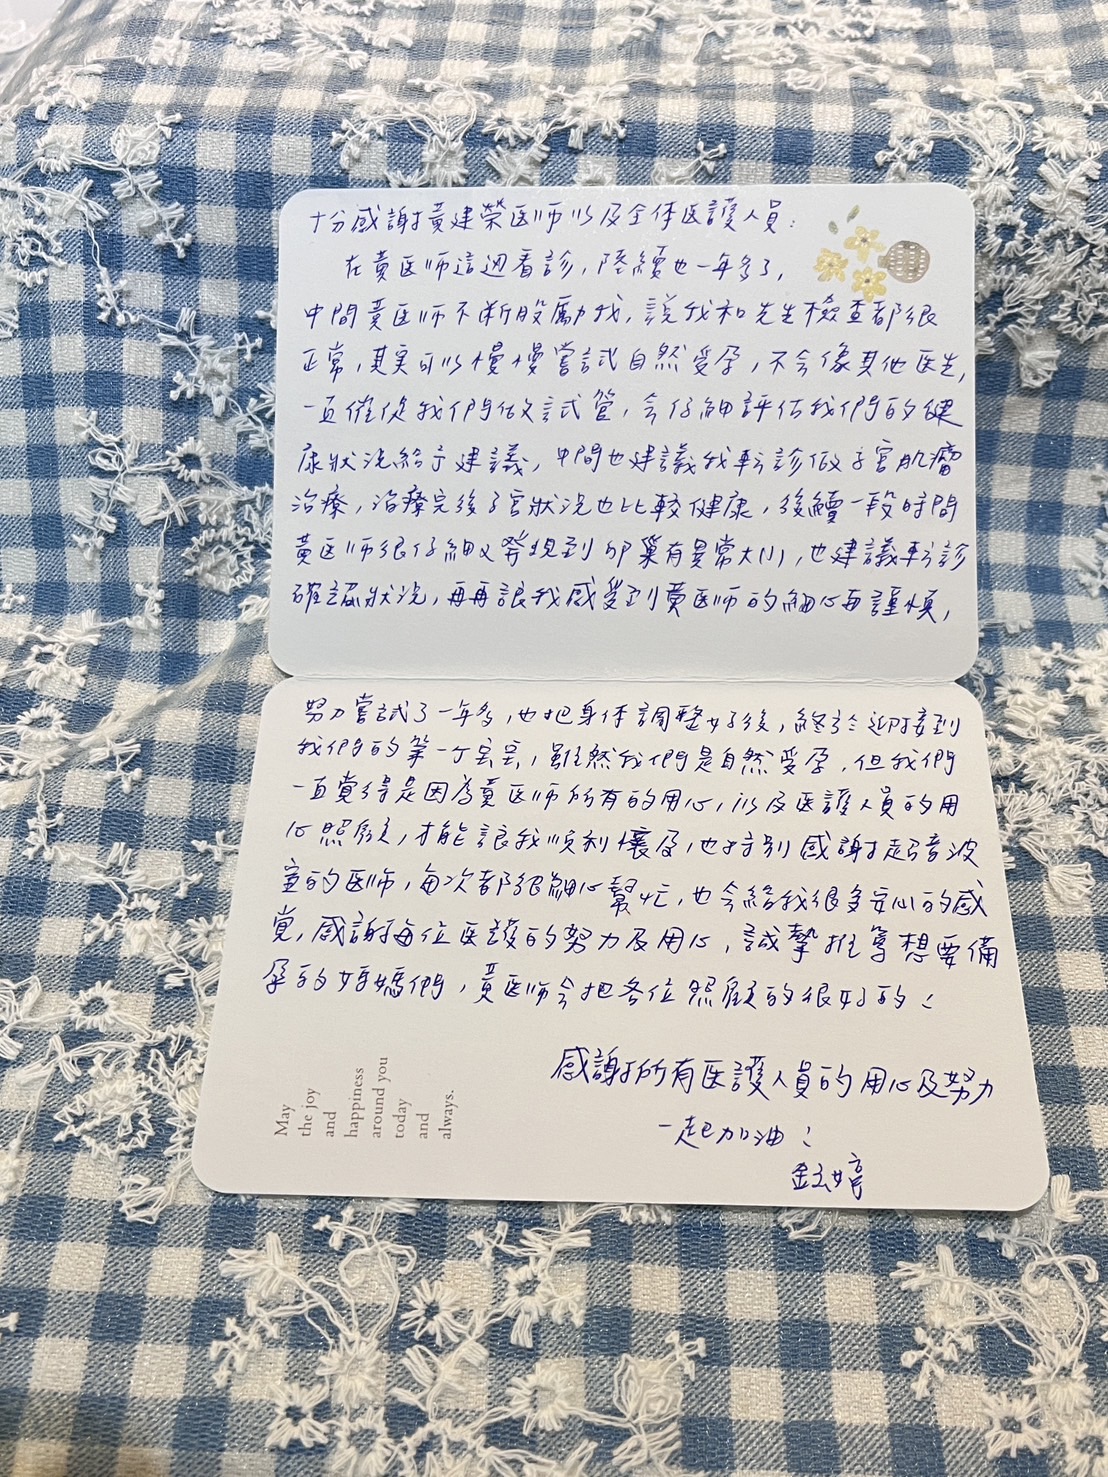 十分感謝黃建榮医师以及全体医護人員：
在黃医师這迴看診，陸續也一年多了，
中間黃医师不断殷勵我，說我和先生檢查都很
正常，其実可以慢慢嘗試自然受孕，不会像其他医生，
一直催促我們做試管，会仔細評估我們的健
康狀況給予建議，中間也建議我転診做子宮肌瘤
治療，治療完後子宮狀況也比較健康，後續一段時間
黃医师很仔細又発現到卵巢有異常大小，也建議転診
確認狀況，再再讓我感受到黃医师的細心與謹慎，
努力嘗試了一年多，也把身体調整好後，終於迎接到
我們的第一個宝宝，雖然我們是自然受孕，但我們
一直覚得是因為黃医师所有的用心，以及医護人員的用
心照顧，才能讓我順利懷孕，也特別感謝超音波
室的医师，每次都很細心幫忙，也会給我很多安心的感
覚，感謝每位医護的努力及用心，誠摯推薦想要備
孕的媽媽們，黃医师会把各位照顧的很好的！
感謝所有医護人員的用心及努力
一起加油！
鈺婷
May
the joy
and
happiness
around you
today
and
always.